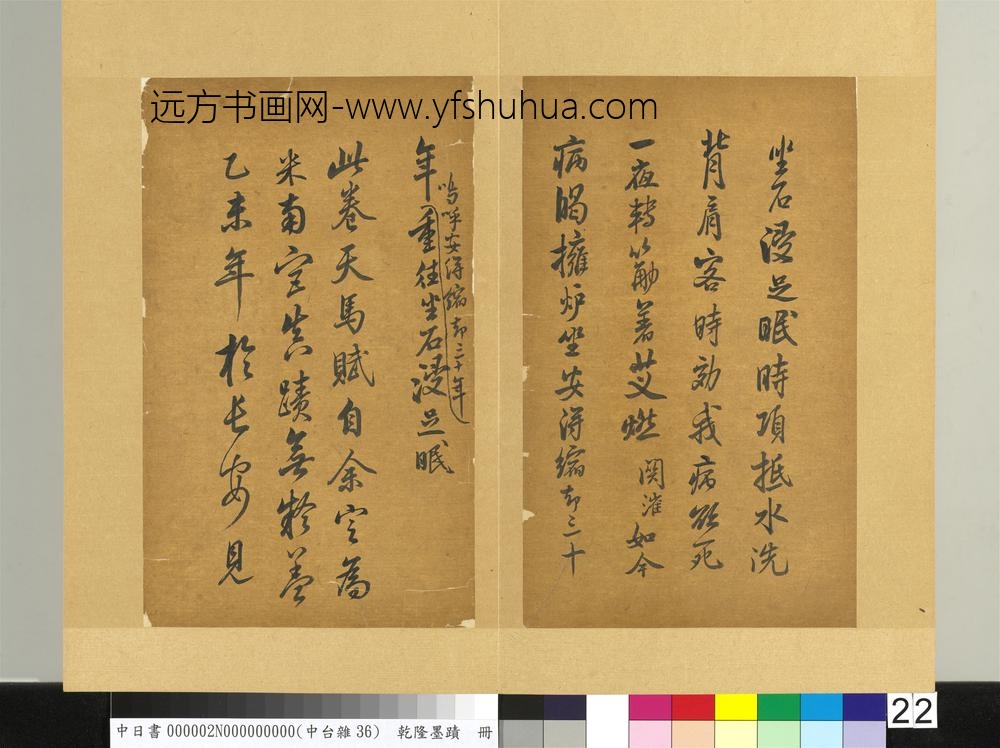 远方书画网-www.yfshuhua.com
坐石浸足眠時項抵水洗
背肩客時効我病欲死
一夜轉筋著艾燃 関潼如今
病暍擁炉坐安得縮却三十
年重往坐石浸足眠
嗚呼安得縮却三十年
此卷天馬賦自余定為
米南宮真蹟無疑蓋
乙未年於長安見
中日書 000002N000000000(中台雜 36) 乾隆墨蹟 冊
22